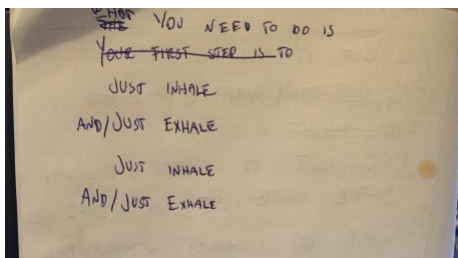 WHAT
THE YOU NEED TO DO IS
YOUR FIRST STEP IS TO
JUST INHALE
AND/JUST EXHALE
JUST INHALE
AND/JUST EXHALE